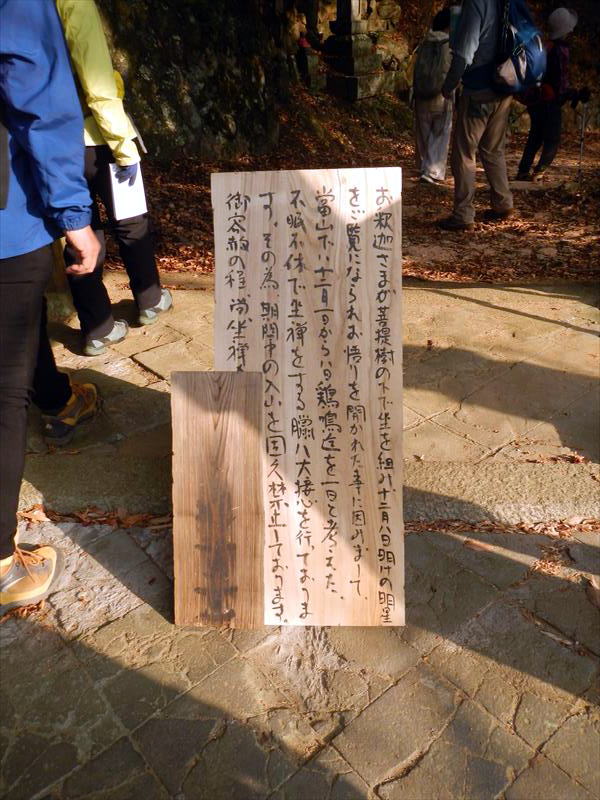 お釈迦さまが菩提樹の下で坐を組み十二月八日明けの明星
をご覧になられお悟りを開かれた事に因みまして
當山では十二月一日から八日鶏鳴迄を一日と考えた、
不眠不休で坐禅をする臘八大接心を行っておりま
す。その為、期間中の入山を固く禁止しております。
御容赦の程、尚坐禅